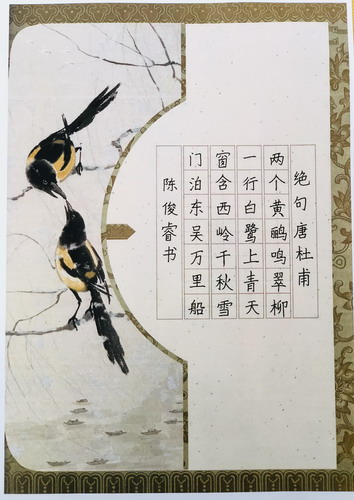 绝句唐杜甫
两个黄鹂鸣翠柳
一行白鹭上青天
窗含西岭千秋雪
门泊东吴万里船
陈俊睿书